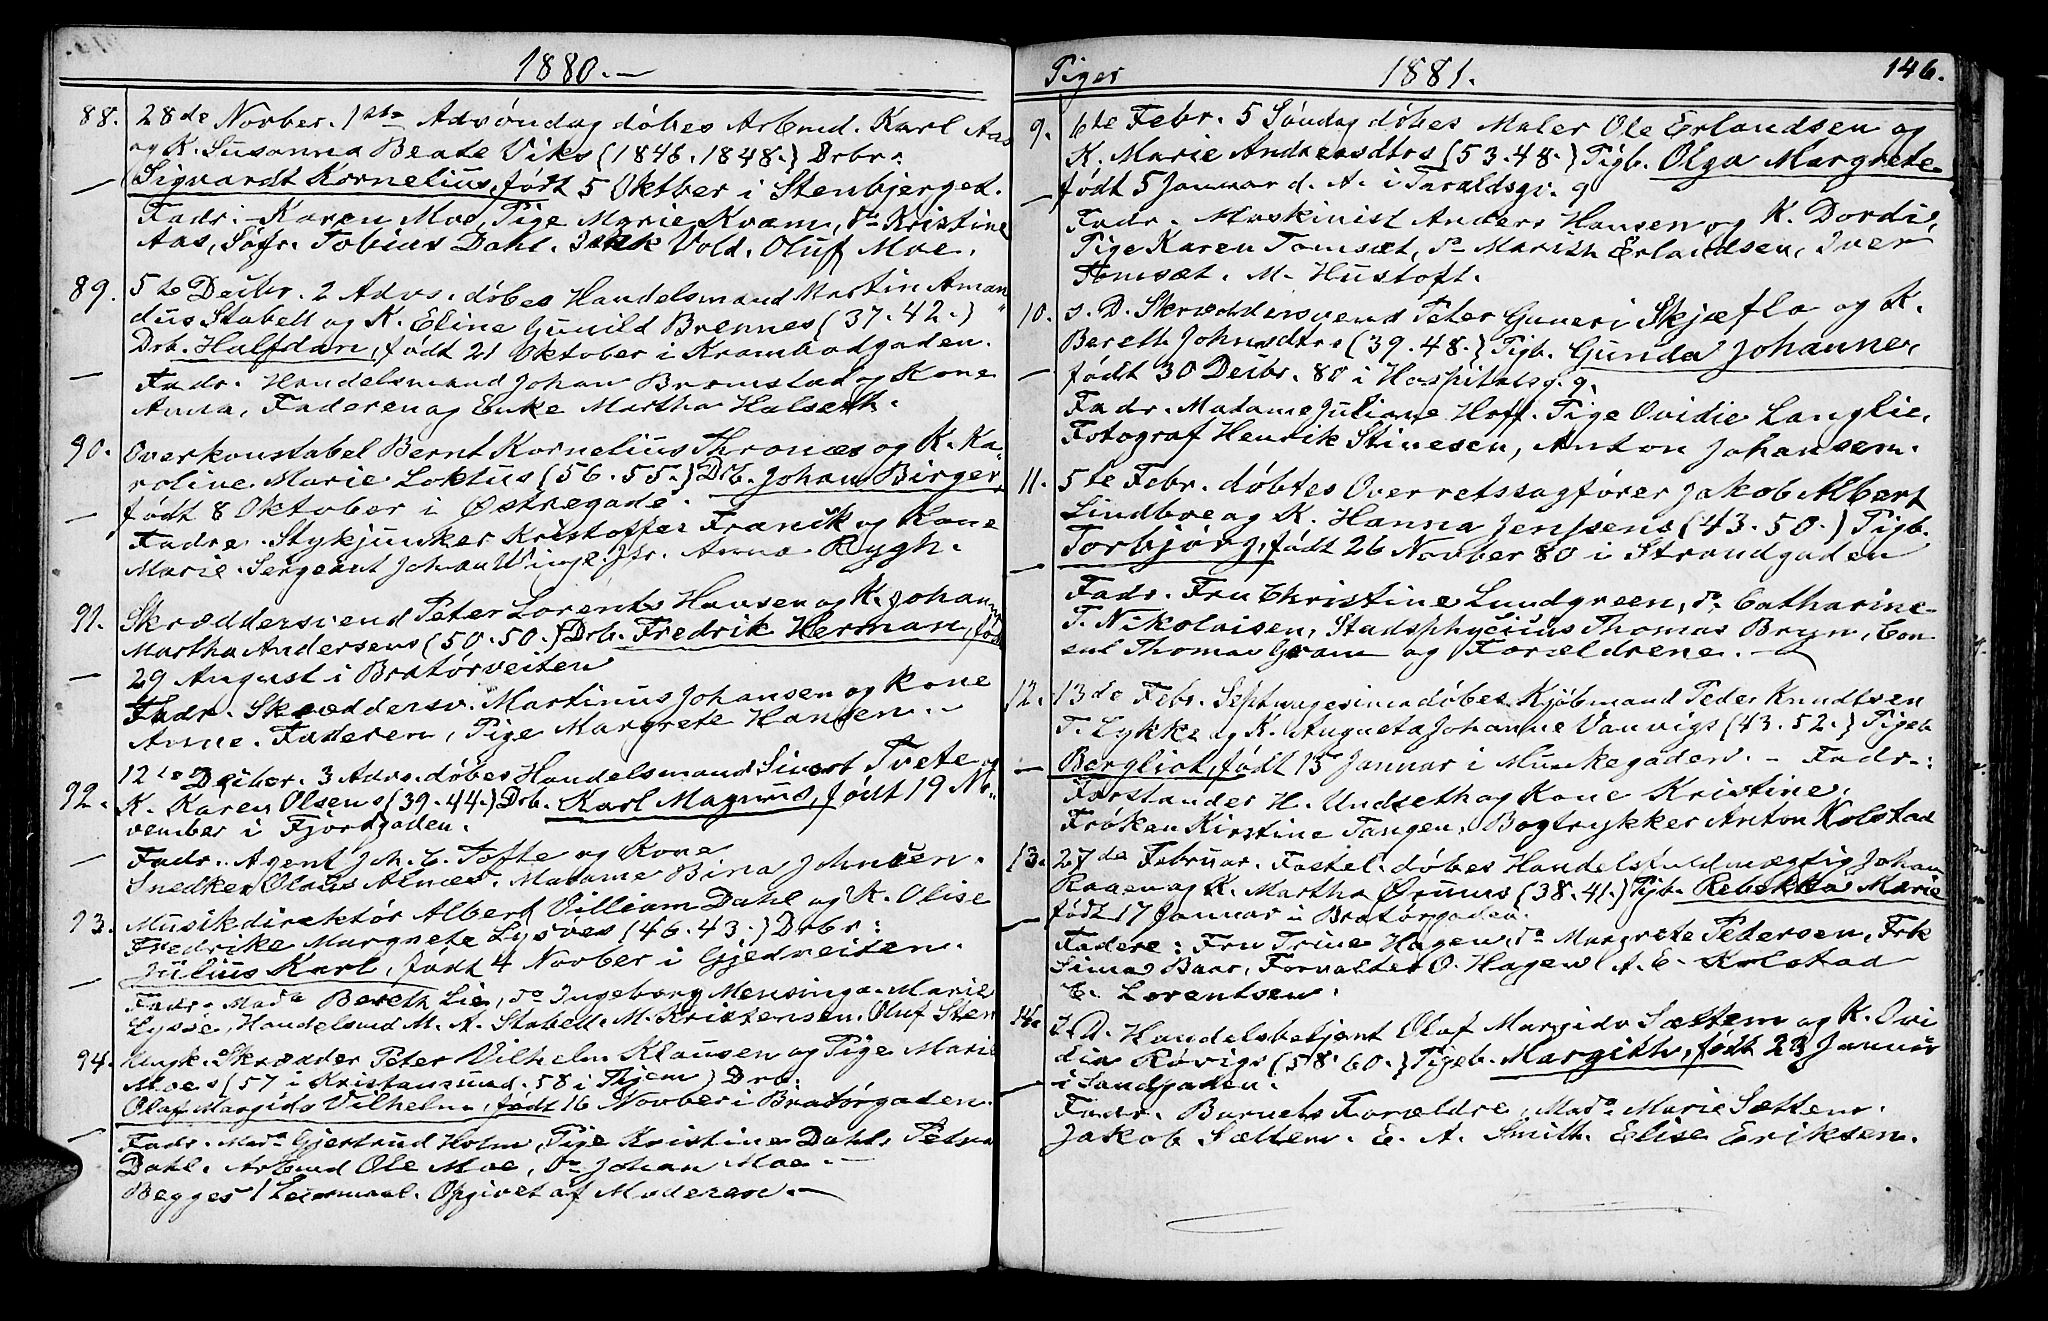 1880.—
88. 28de Novber. 1ste Advsöndag döbes Arbmd. Karl Aas
og K. Susanna Beate Viks (1846. 1848.) Drbr:
Sigvardt Kornelius, födt 5 Oktber i Stenbjerget.
— Fadr: Karen Moe, Pige Marie Kvam, do Kristine
Aas, Söfr. Tobias Dahl. Vold. Oluf Moe.
89. 5te Decbr. 2 Advs. döbes Handelsmand Martin Aman
dus Stabell og K. Eline Gunild Brennes (37. 42.)
Drb. Halfdan, födt 21 Oktober i Krambodgaden.
— Fadr. Handelsmand Johan Bromstad og Kone
Anna, Faderen og Enke Martha Halseth.
90. Overkonstabel Bernt Kornelius Thronæs og K. Ka-
roline Marie Loktus (56. 55.) Drb. Johan Birger,
födt 8 Oktober i Østregade.
— Fadre. Stykjunker Kristoffer Franik og Kone
Marie. Sergeant Johan Winge. Jfr. Anna Rygh.
91. Skræddersvend Peter Lorents Hansen og K. Johanne
Martha Andersens (50. 50.) Drb. Fredrik Herman, födt
— 29 August i Bratörveiten
Fadr. Skræddersv. Martinus Johansen og Kone
Anne. Faderen, Pige Margrete Hansen.—
12te Decber. 3 Advs. döbes Handelsmand Sivert Tvete og
92. K. Karen Olsens (39. 44.) Drb. Karl Magnus, födt 19 No-
vember i Fjordgaden.
— Fadr. Agent Joh. C. Tofte og Kone
Snedker Olaus Alnæs. Madame Bina Johnsen.
93. Musikdirektör Albert Villiam Dahl og K. Olise
Fredrike Margrete Lysöes (46. 43.) Drbr:
Julius Karl, födt 4 Novber i Gjedveiten.
— Fadr. Mada Bereth Lie, do Ingeborg Mensinga. Marie
Lysöe, Handelsmd M. A. Stabell. M. Kristensen. Oluf Sten
94. Ungk. Skrædder Peter Vilhelm Klausen og Pige Marie
Moes (57 i Kristiansund. 58 i Thjem) Drb:
Olaf Margido Vilhelm, födt 16 Novber i Bratörgaden.
— Fadr. Mada Gjertrud Holm, Pige Kristine Dahl, Petra
Dahl. Arbmd Ole Moe, do Johan Moe.—
Begges 1 Leiermaal. Opgivet af Moderen.—
Piger 1881. 146.
9. 6te Febr. 5 Söndag döbes Maler Ole Erlandsen og
K. Marie Andreasdtrs (53. 48.) Pigb. Olga Margrete
— födt 5 Januar d. A. i Taraldsgr. g
Fadr. Maskinist Anders Hansen og K. Dordi,
Pige Karen Tomsæt, do Marith Erlandsen, Iver
Tomsæt. M. Hustoft.
10. s. D. Skræddersvend Peter Guneri Skjæflo og K.
Bereth Johnsdtrs (39. 48.) Pigb. Gunda Johanne,
— födt 30 Decbr. 80 i Hospitalsg. g.
Fadr. Madame Juliane Hoff. Pige Ovidie Langlie,
Fotograf Henrik Stinesen, Anton Johansen.
11. 5te Febr. döbtes Overretssagförer Jakob Albert
Lindboe og K. Hanna Jenssens (43. 50.) Pigb.
Torbjörg, födt 26 Novber 80 i Strandgaden
— Fadr. Fru Christine Lundgreen, do. Catharine
T. Nikolaisen, Stadsphycicus Thomas Bryn, Con-
sul Thomas Gram og Forældrene.—
12. 13de Febr. Septuagesima döbes Kjöbmand Peder Knudtsen
T. Lykke og K. Augusta Johanne Vanvigs (43. 52.) Pigeb.
— Bergliot, födt 15 Januar i Munkegaden. – Fadr.:
Forstander H. Undseth og Kone Kristine,
Fröken Kirstine Tangen, Bogtrykker Anton Kolstad
13. 27de Februar. Fastel. döbes Handelsfuldmægtig Johan
Kaaen og K. Martha Örnums (38. 41.) Pigb. Rebekka Marie
— födt 17 Januar i Bratörgaden.
Fadere: Fru Trine Hagen, do Margrete Pedersen, Frk
Sima Baar, Forvalter O. Hagen A. C. Kolstad
C. Lorentsen.
14. s. D. Handelsbetjent Olaf Margido Sættem og K. Ovi
dia Rövigs (58. 60.) Pigeb. Margith, födt 23 Januar
— i Sandgaden.
Fadr. Barnets Forældre, Mada Marie Sættem.
Jakob Sættem. E. A. Smith. Elise Eriksen.